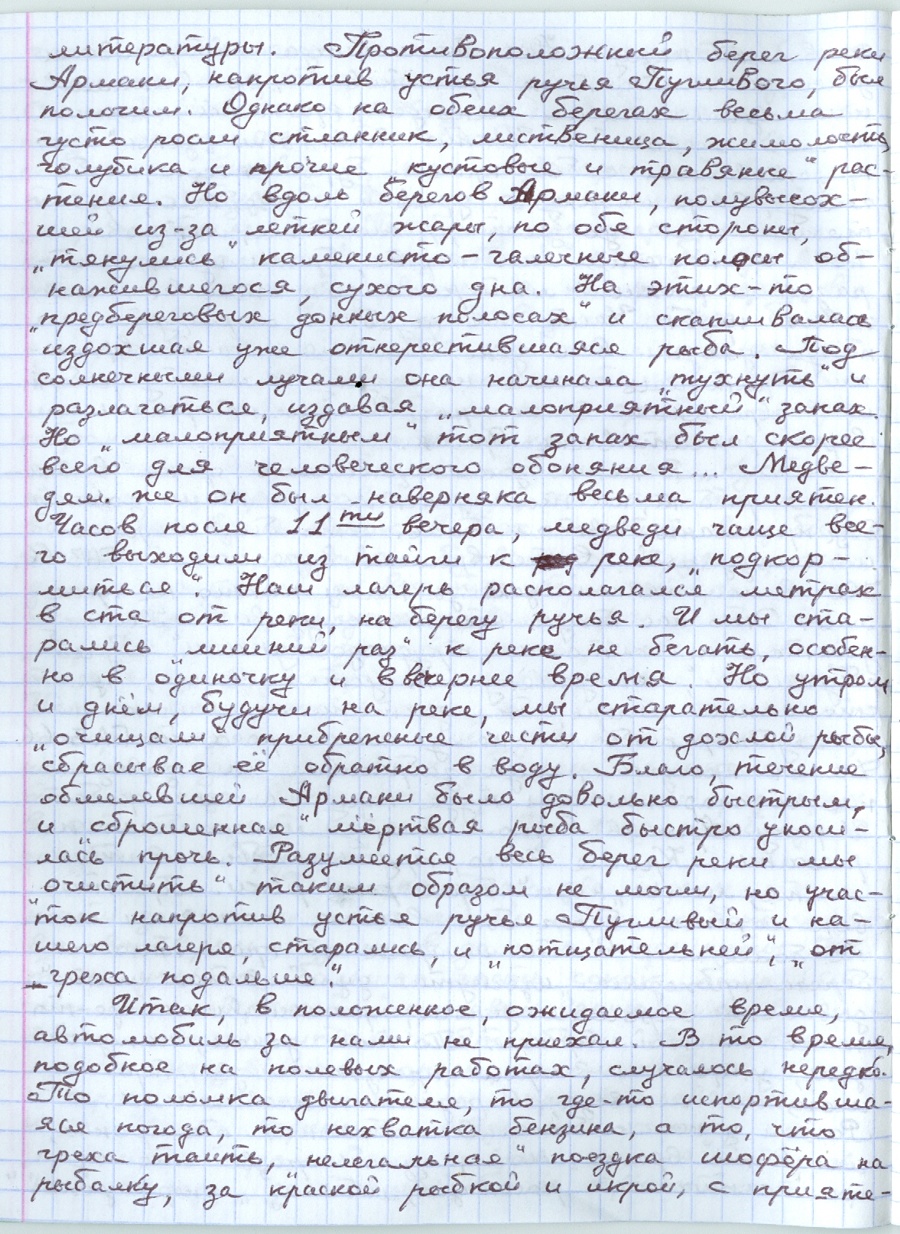 литературы. Противоположный берег реки
Армани, напротив устья ручья "Пугливого, был
пологим. Однако на обеих берегах весьма
густо росли стланник, лиственица, жимолость,
голубика и прочие "кустовые и травяные" рас-
тения. Но вдоль берегов Армани, полувысох-
шей из-за летней жары, по обе стороны,
"тянулись" каменисто-галечные полосы об-
нажившегося, сухого дна. На этих-то
"предбереговых донных полосах" и скапливалась
издохшая уже отнерестившаяся рыба. Под
солнечными лучами она начинала "тухнуть" и
разлагаться, издавая "малоприятный" запах.
Но "малоприятным" тот запах был скорее
всего для человеческого обоняния... Медве-
дям же он был наверняка весьма приятен.
Часов после 11ти вечера, медведи чаще все-
го выходили из тайги к реке, "подкор-
миться". Наш лагерь располагался метрах
в ста от реки, на берегу ручья. И мы ста-
рались "лишний раз" к реке не бегать, особен-
но в одиночку и в вечернее время. Но утром
и днём, будучи на реке, мы старательно
"очищали" прибрежные части от дохлой рыбы,
сбрасывая её обратно в воду. Благо, течение
обмелевшей Армани было довольно быстрым,
и сброшенная" мёртвая рыба быстро уноси-
лась прочь. Разумеется весь берег реки мы
"очистить" таким образом не могли, но учас-
ток напротив устья ручья "Пугливый" и на-
шего лагеря, старались, и "потщательней", "от
греха подальше".
Итак, в положенное, ожидаемое время,
автомобиль за нами не приехал. В то время,
подобное на полевых работах, случалось нередко.
То поломка двигателя, то где-то испортивша-
яся погода, то нехватка бензина, а то, что
греха таить, "нелегальная" поездка шофёра на
рыбалку, за красной рыбкой и икрой, с прияте-